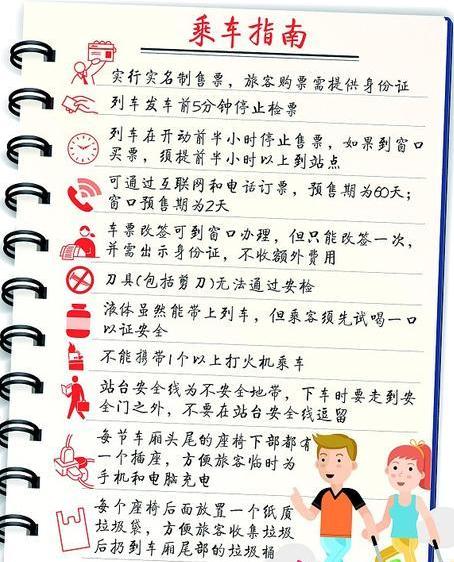 乘车指南
实行实名制售票，旅客购票需提供身份证
列车发车前5分钟停止检票
列车在开动前半小时停止售票，如果到窗口
买票，须提前半小时以上到站点
可通过互联网和电话订票，预售期为60天；
窗口预售期为2天
车票改签可到窗口办理，但只能改签一次，
并需出示身份证，不收额外费用
刀具(包括剪刀)无法通过安检
液体虽然能带上列车，但乘客须先试喝一口
以证安全
不能携带1个以上打火机乘车
站台安全线为不安全地带，下车时要走到安
全门之外，不要在站台安全线逗留
每节车厢头尾的座椅下部都有
一个插座，方便旅客临时为
手机和电脑充电
每个座椅后面放置一个纸质
垃圾袋，方便旅客收集垃圾
后扔到车厢尾部的垃圾桶